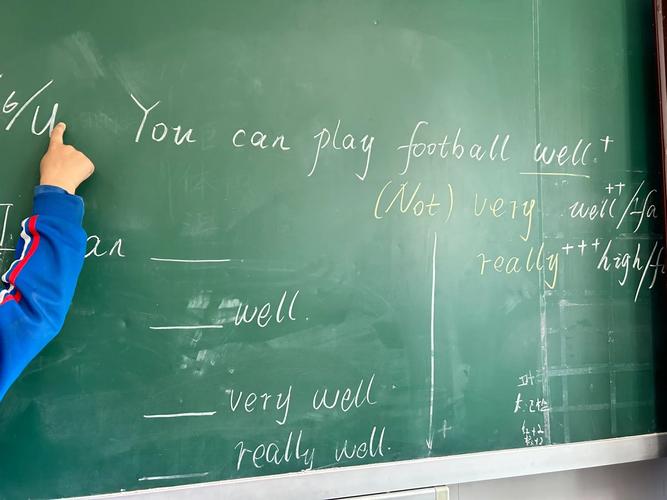 6/U You can play football well.+
(Not) very well++/fa
really+++ high/f
an ____
____ well.
____ very well
____ really well.